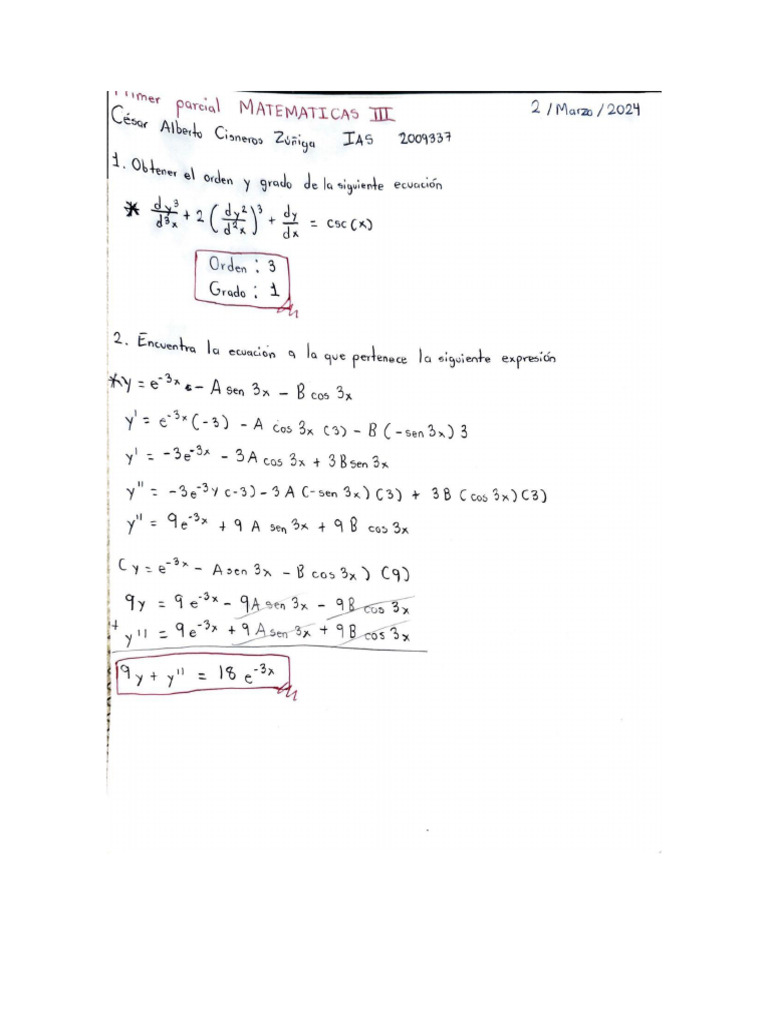 Primer parcial MATEMATICAS III 2/Marzo/2024
César Alberto Cisneros Zúñiga IAS 2009337
1. Obtener el orden y grado de la siguiente ecuación
* dy³/d³x + 2(dy²/d²x)³ + dy/dx = csc(x)
Orden: 3
Grado: 1
2. Encuentra la ecuación a la que pertenece la siguiente expresión
*y = e⁻³ˣ - A sen 3x - B cos 3x
y' = e⁻³ˣ(-3) - A cos 3x (3) - B(-sen 3x) 3
y' = -3e⁻³ˣ - 3A cos 3x + 3B sen 3x
y'' = -3e⁻³y(-3) - 3A(-sen 3x)(3) + 3B(cos 3x)(3)
y'' = 9e⁻³ˣ + 9A sen 3x + 9B cos 3x
(y = e⁻³ˣ - A sen 3x - B cos 3x)(9)
9y = 9e⁻³ˣ - 9A sen 3x - 9B cos 3x
+ y'' = 9e⁻³ˣ + 9A sen 3x + 9B cos 3x
9y + y'' = 18e⁻³ˣ